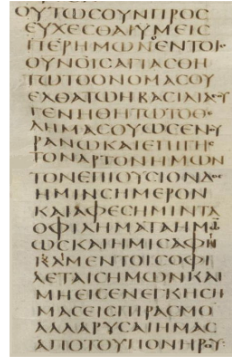 ΟΥΤΩCΟΥΝΠΡΟC
ΕΥΧΕCΘΑΙΥΜΕΙC
ΠΕΡΗΜΩΝΕΝΤΟΙ
ΟΥΝΟΙCΑΓΙΑCΘΗ
ΤΩΤΟΟΝΟΜΑCΟΥ
ΕΛΘΑΤΩΗΒΑCΙΛΙΑ
ΓΕΝΗΘΗΤΩΤΟΘΕ
ΛΗΜΑCΟΥΩCΕΝΟΥ
ΡΑΝΩΚΑΙΕΠΙΓΗ
ΤΟΝΑΡΤΟΝΗΜΩΝ
ΤΟΝΕΠΙΟΥCΙΟΝ
ΗΜΙΝCΗΜΕΡΟΝ
ΚΑΙΑΦΕCΗΜΙΝΤΑ
ΟΦΙΛΗΜΑΤΑΗΜ
ΩCΚΑΙΗΜΙCΑΦΗ
ΚΑΜΕΝΤΟΙCΟΦΙ
ΛΕΤΑΙCΗΜΩΝΚΑΙ
ΜΗΕΙCΕΝΕΓΚΗCΗ
ΜΑCΕΙCΠΙΡΑCΜΟ
ΑΛΛΑΡΥCΑΙΗΜΑC
ΑΠΟΤΟΥΠΟΝΗΡΟΥ